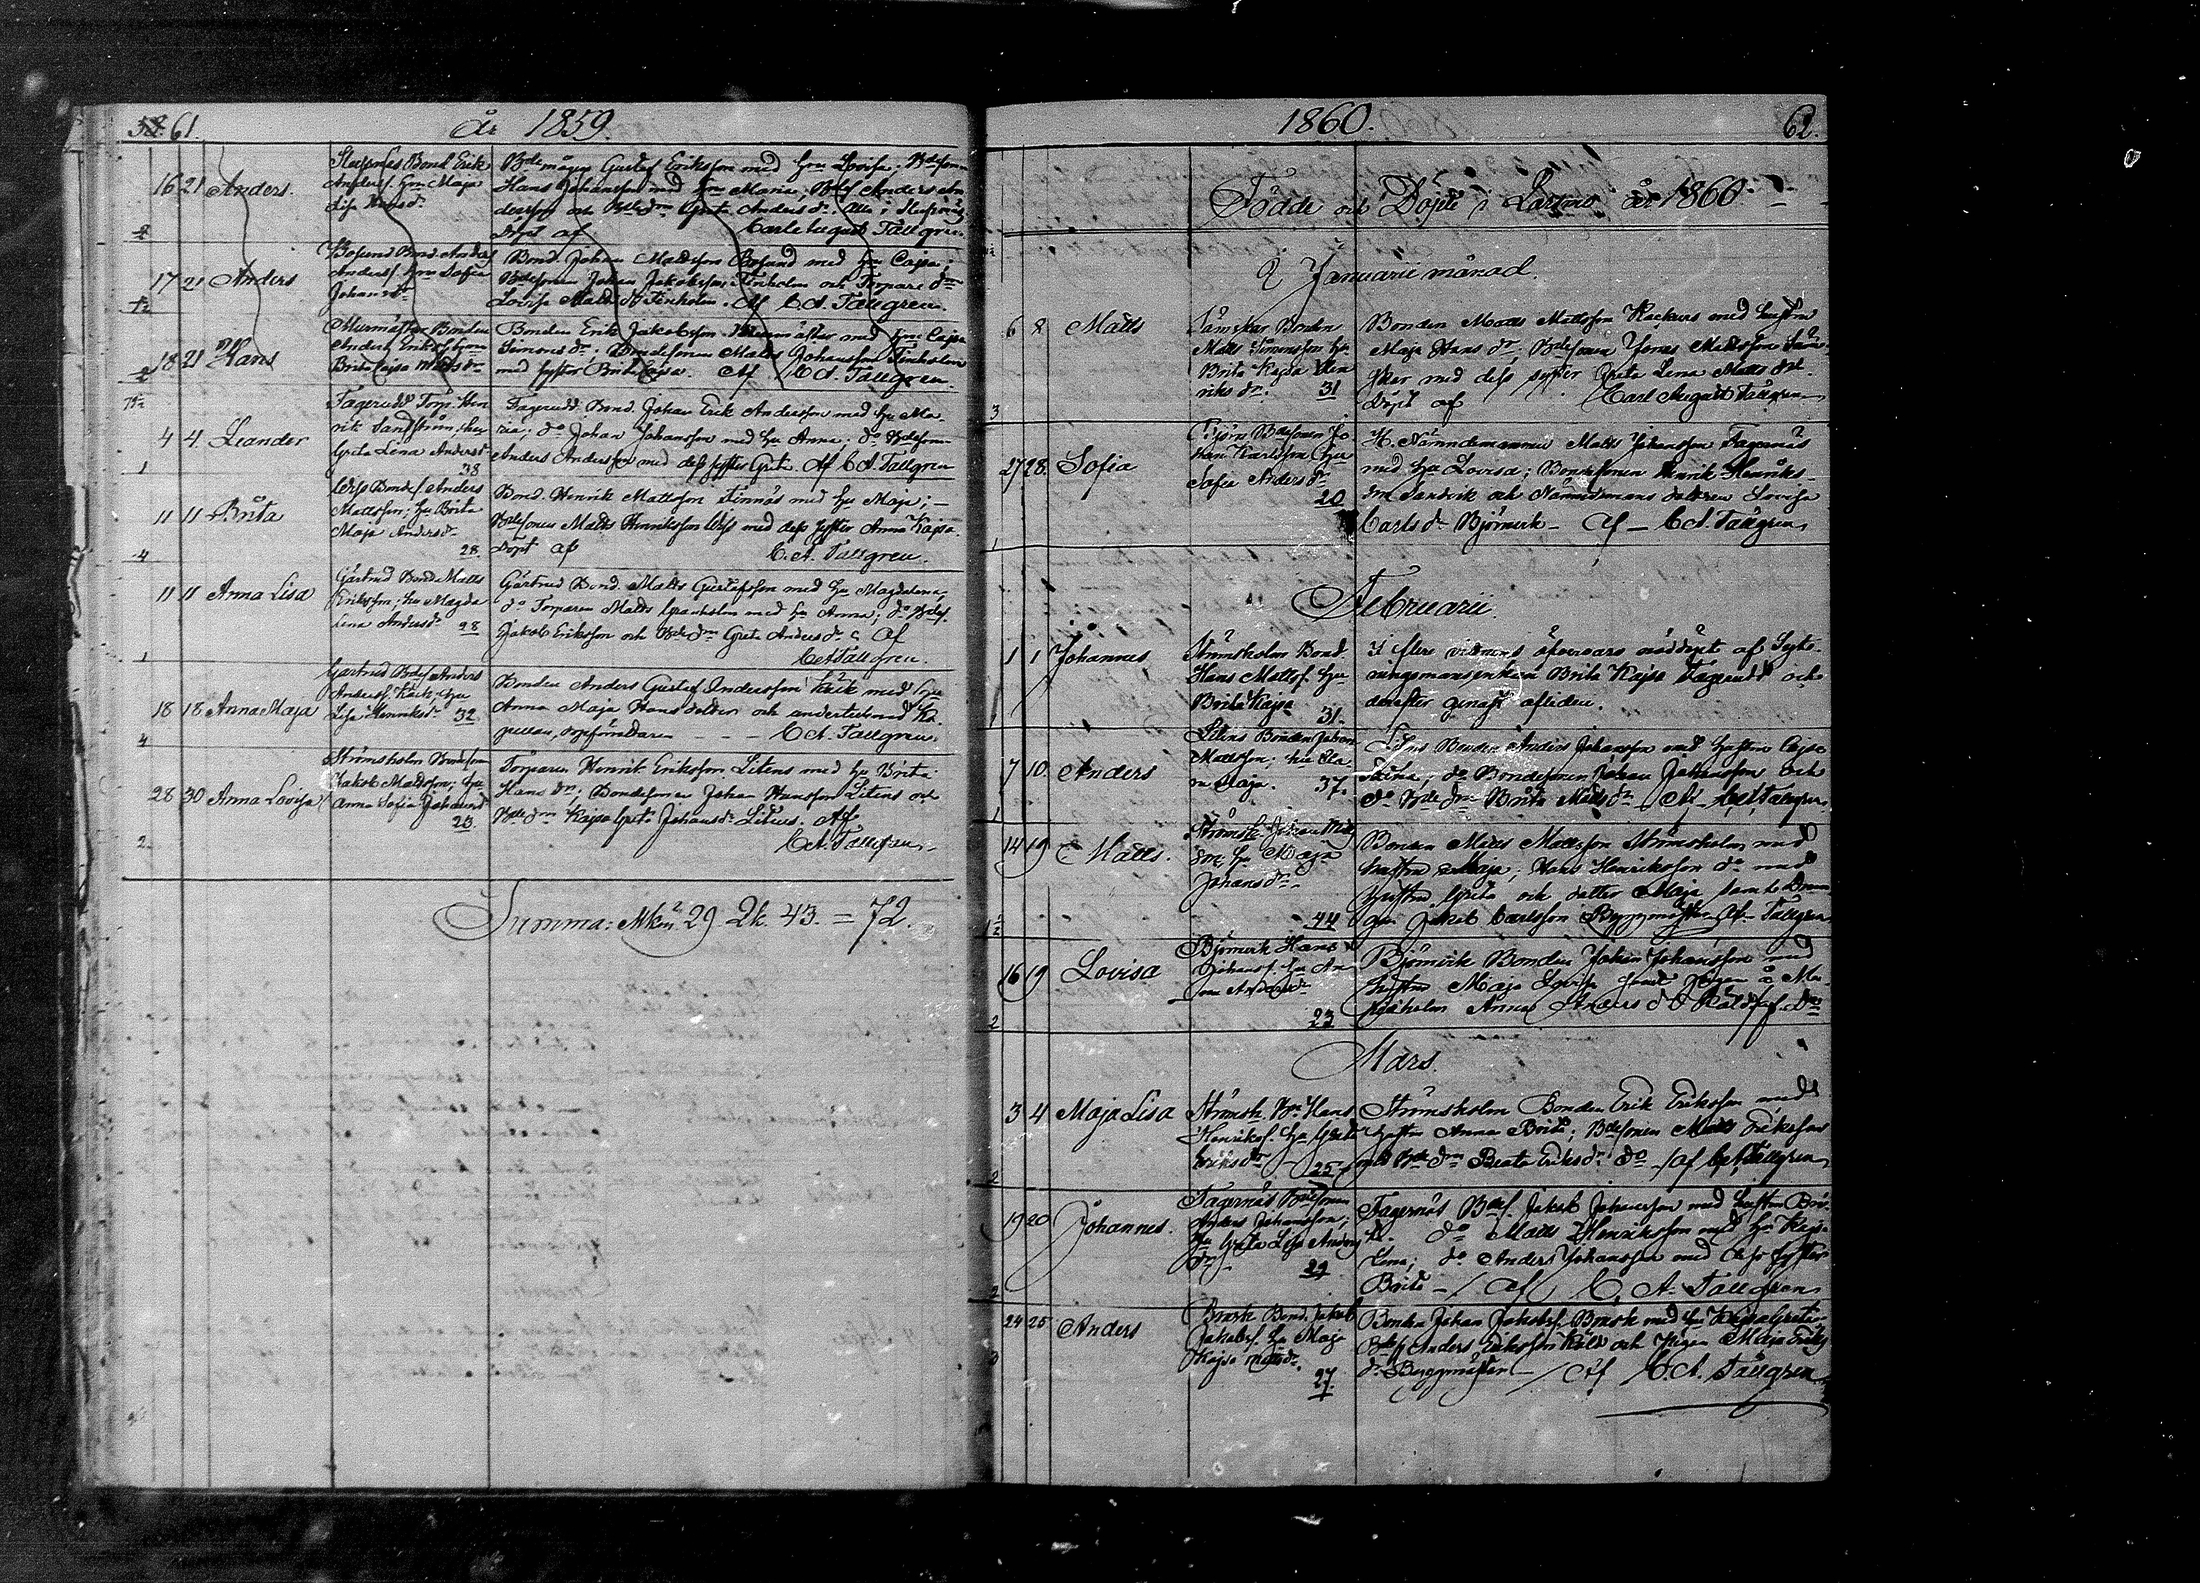 58 61.
År 1859.
16 21 Anders.
Bond Erik
Anderss. Hru Maja
Lisa
Bdemågen Gustaf Eriksson med Hru Lovisa, Bdeson
Hans Johansson med Hru Maria, Bdes Anders An
dersson och Bdedn Greta Andersdr. alla i
Döpt af Carl August Tallgren.
17 21 Anders
Bosund Bond. Anders
Anderss. Hru Sofia
Johansdr
Bond. Johan Mattsson Bosund med Hru Cajsa;
Bdesonen Johan Jakobsson Finholm och Torpare dn
Lovisa Mattsdr Finholm. Af C.A. Tallgren.
18 21 Hans
Murmäster Bonden
Anders Eriksson
Brita Cajsa Mattsdr
Bonden Erik Jakobsson Murmäster med Hru Cajsa
Simonsdr; Bondesonen Matts Johansson Finholm
med syster Brita Cajsa. Af C.A. Tallgren.
4 4. Leander
Fagerudd Torp. Hen
rik Sandström, Hu
Greta Lena Andersdr
38
Fagerudd Bond. Johan Erik Andersson med Hu Ma
ria; do Johan Johansson med Hu Anna; do Bdeson
Anders Andersson med dess syster Greta. Af C.A. Tallgren
1
11 11 Brita
Bondes Anders
Mattsson; Hu Brita
Maja Andersdr
28.
Bond. Henrik Mattsson Finnäs med Hu Maja;
Bdesonen Matts Henriksson med dess syster Anna Kajsa.
Döpt af C.A. Tallgren.
4
11 11 Anna Lisa
Gärtrud Bond. Matts
Eriksson; Hu Magda
lena Andersdr 28
Gärtrud Bond. Matts Gustafsson med Hu Magdalena,
do Torparen Matts Granholm med Hu Anna; do Bdes.
Jakob Eriksson och Bdedn Greta Andersdr. Af
C.A. Tallgren.
1
18 18 Anna Maja
Gärtrud Bdes. Anders
Anderss. Käck, Hu
Lisa Henriksdr 32
Bonden Anders Gustaf Andersson Käck med Hu
Anna Maja Hansdotter och undertecknad Ka
pellan, C.A. Tallgren.
4
28 30 Anna Lovisa
Strömsholm Bondeson
Jakob Mattsson; Hu
Anna Sofia Johansdr
23.
Torparen Henrik Eriksson Litens med Hu Brita
Hansdr; Bondesonen Johan Hansson Litens och
Bdedn Kajsa Greta Johansdr Litens. Af
C.A. Tallgren.
2
Summa: Mkn 29 Qk. 43. = 72.
1860. 62.
Födde och Döpte i Larsmo år 1860.
I Januarii månad.
6 8 Matts
Sämskar Bonden
Matts Simonsson Hu
Brita Kajsa Hen
riksdr. 31
Bonden Matts Mattsson Kackurs med hustru
Maja Hansdr, Bdesonen Jonas Mattsson Säm-
skar med dess syster Greta Lena Mattsdr.
Döpt af Carl August Tallgren
3
27 28. Sofia
Bdesonen Jo
han Karlsson Hu
Sofia Andersdr
20
H. Nämndemannen Matts Johansson Fagernäs
med Hu Lovisa; Bondesonen Henrik Henriks-
son Sandvik och Nämndemans dottren Lovisa
Carlsdr Björnvik – Af – C.A. Tallgren
1
Februarii.
1 1 Johannes
Strömsholm Bond.
Hans Mattss. Hu
Brita Kajsa
31.
I flere vittnens öfvervaro nöddöpt af Sytt-
ningsmansenkan Brita Kajsa Fagerudd och
derefter genast afliden.
7 10. Anders
Litens Bonden Johan
Mattsson; Hu Cla
ra Maja. 37.
Litens Bonden Anders Johansson med hustru Cajsa
do Bondesonen Johan Johansson och
do Bdedn Brita Mattsdr. Af C.A. Tallgren.
1
14 19 Matts.
Strömsh. Johan Matts
son, Hu Maja
Johansdr
44
Bonden Matts Mattsson Strömsholm med
hustru Maja; Hans Henriksson do med
hustru Greta och dotter Maja samt Drän
gen Jakob Carlsson Byggmästar Af Tallgren
16 19 Lovisa
Björnvik Hans
Johanss. Hu An
na Andersdr
23
Björnvik Bonden Johan Johansson med
hustru Maja Lovisa samt Pigan å
holm Anna Andersdr
2
Mars.
3 4 Maja Lisa
Strömsh. Bn Hans
Henrikss. Hu Greta
Eriksdr – 25
Strömsholm Bonden Erik Eriksson med
hustru Anna Brita; Bdesonen Matts Eriksson
med Bdedn Beata Eriksdr do / af C.A. Tallgren
2
19 20 Johannes.
Fagernäs Bdesonen
Anders Johansson;
Hu Greta Lisa Anders
dr 29
Fagernäs Bdes. Jakob Johansson med hustru Bri-
ta. do Matts Henriksson med Hu Kajsa
Lena; do Anders Johansson med dess syster
Brita – / Af / C. A. Tallgren
2
24 25 Anders
Bond. Jakob
Jakobss. Hu Maja
Kajsa Mattsdr.
27.
Bonden Johan Jakobss. med Hu Kajsa Greta
Bdess Anders Eriksson och Pigan Maja Eriks
dr Byggmästar – / Af / C.A. Tallgren
3